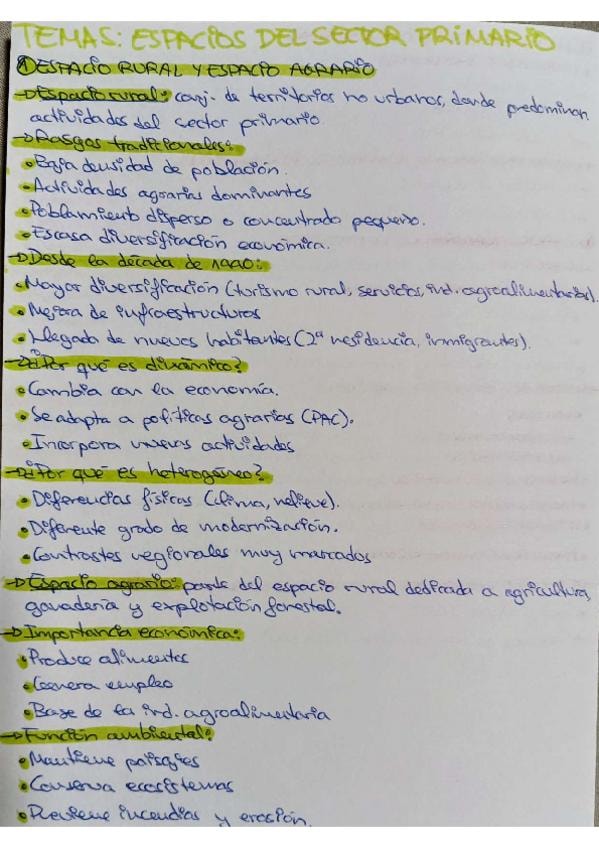 TEMAS: ESPACIOS DEL SECTOR PRIMARIO
① ESPACIO RURAL Y ESPACIO AGRARIO
→ Espacio rural: conj. de territorios no urbanos, donde predominan
actividades del sector primario.
→ Rasgos tradicionales:
• Baja densidad de población.
• Actividades agrarias dominantes
• Poblamiento disperso o concentrado pequeño.
• Escasa diversificación económica.
→ Desde la década de 1990:
• Mayor diversificación (turismo rural, servicios, ind. agroalimentarias).
• Mejora de infraestructuras
• Llegada de nuevos habitantes (2ª residencia, inmigrantes).
→ ¿Por qué es dinámico?
• Cambia con la economía.
• Se adapta a políticas agrarias (PAC).
• Incorpora nuevas actividades
→ ¿Por qué es heterogéneo?
• Diferencias físicas (clima, relieve).
• Diferente grado de modernización.
• Contrastes regionales muy marcados
→ Espacio agrario: parte del espacio rural dedicada a agricultura,
ganadería y explotación forestal.
→ Importancia económica:
• Produce alimentos
• Genera empleo
• Base de la ind. agroalimentaria
→ Función ambiental:
• Mantiene paisajes
• Conserva ecosistemas
• Previene incendios y erosión.